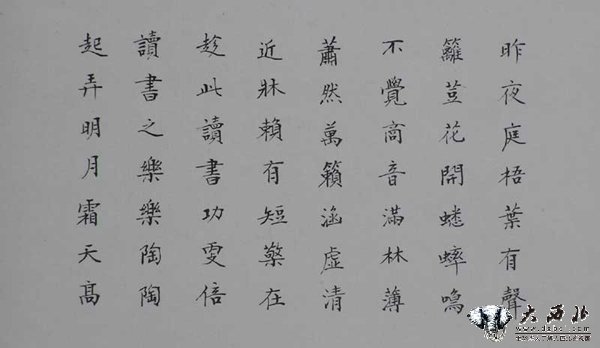 昨夜庭梧葉有聲
籬荳花開蟋蟀鳴
不覺商音滿林薄
蕭然萬籟涵虛清
近牀賴有短檠在
趁此讀書功更倍
讀書之樂樂陶陶
起弄明月霜天髙
大西北